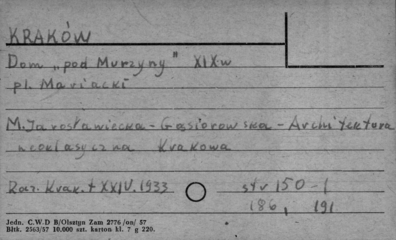 KRAKÓW
Dom „pod Murzyny" XIXw
pl. Mariacki
M. Jarosławiecka-Gąsiorowska - Architektura
neoklasyczna Krakowa
Rocz. Krak. t XXIV. 1933 str 150-1
186, 191
Jedn. C.W.D B/Olsztyn Zam 2776/on/ 57
Bltk. 2563/57 10.000 szt. karton kl. 7 g 220.